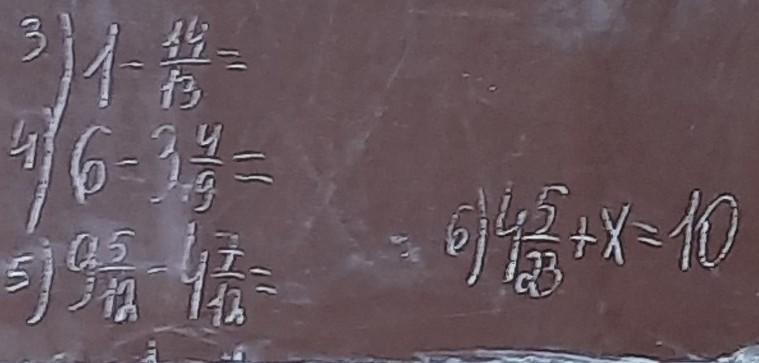 3) 1 - 14/13 =
4) 6 - 3 4/9 =
5) 9 5/12 - 4 7/12 =
6) 4 5/23 + x = 10